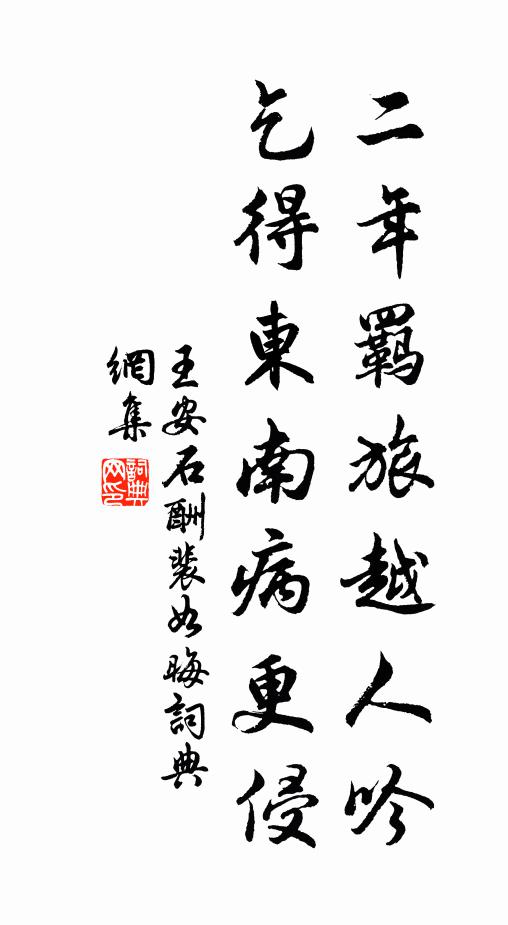 二年羈旅越人吟
乞得東南病更侵
王安石酬裴如晦詞典
網集
詞典
网印